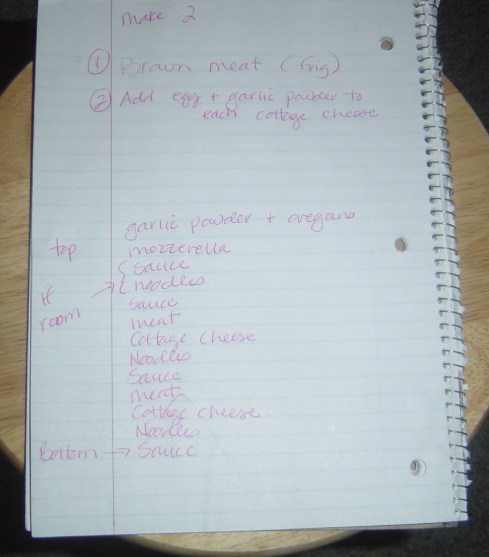 make 2
① Brown meat (frig)
② Add egg + garlic powder to
each cottage cheese
garlic powder + oregano
top mozzerella
sauce
If room → noodles
sauce
meat
Cottage cheese
Noodles
Sauce
meat
Cottage cheese
Noodles
Bottom → Sauce